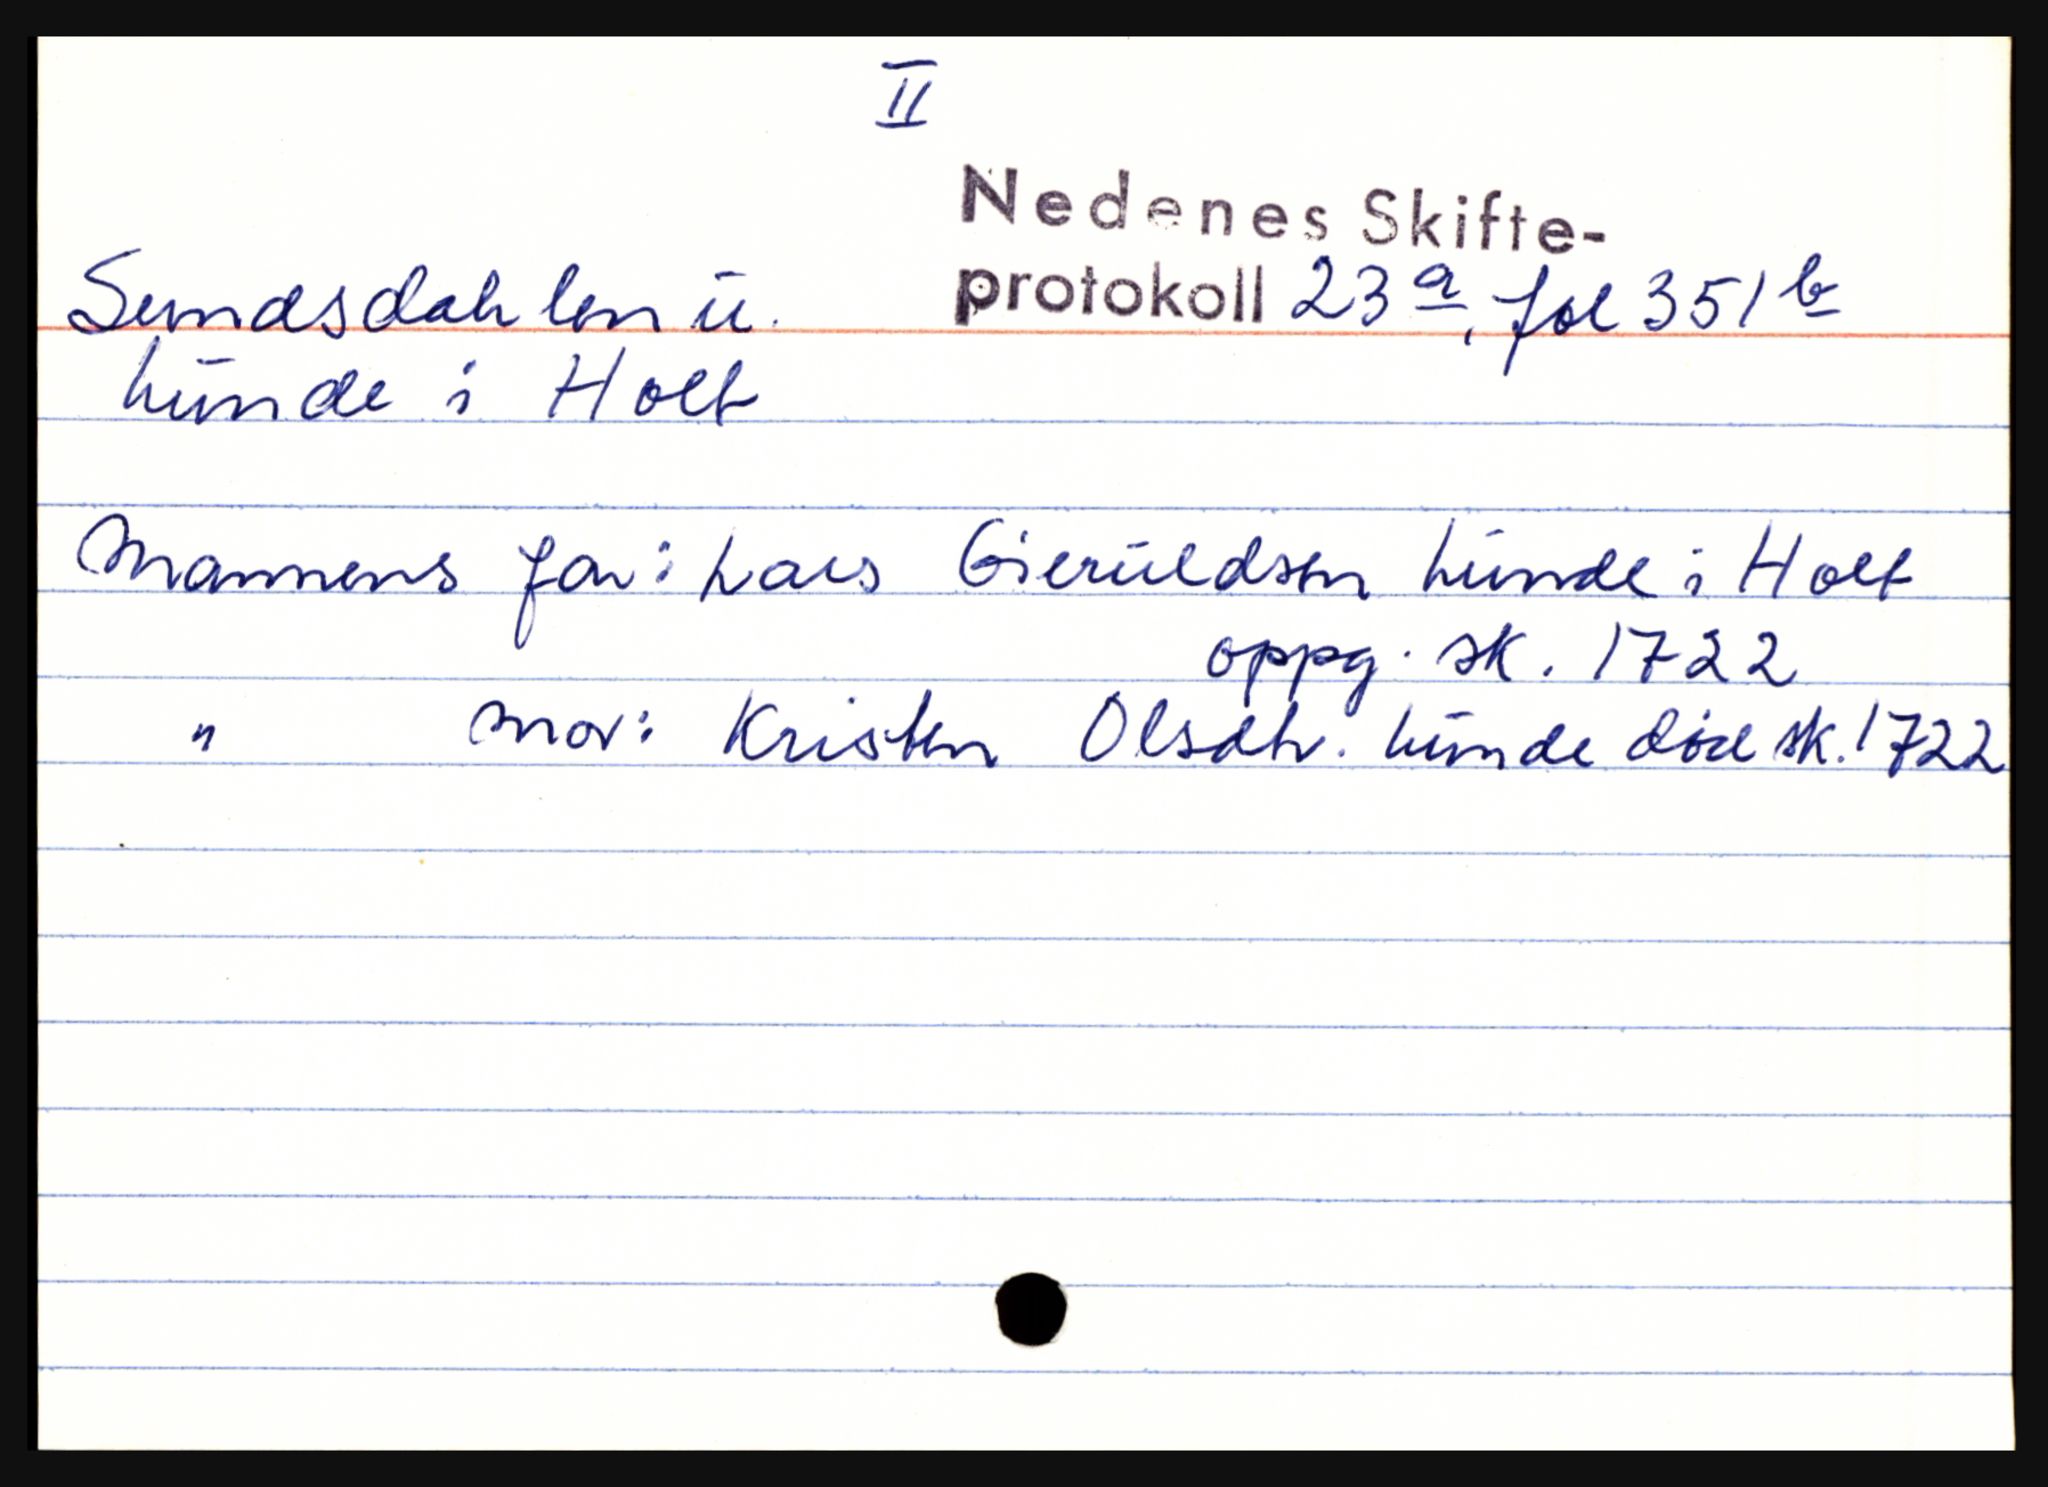 II
Nedenes Skifte-
protokoll 23 a, fol 351 b
Sundsdahlen u.
Lunde i Holt
Mannens far: Lars Gieruldsen Lunde i Holt
oppg. sk. 1722
" mor: Kristen Olsdtr. Lunde død sk. 1722